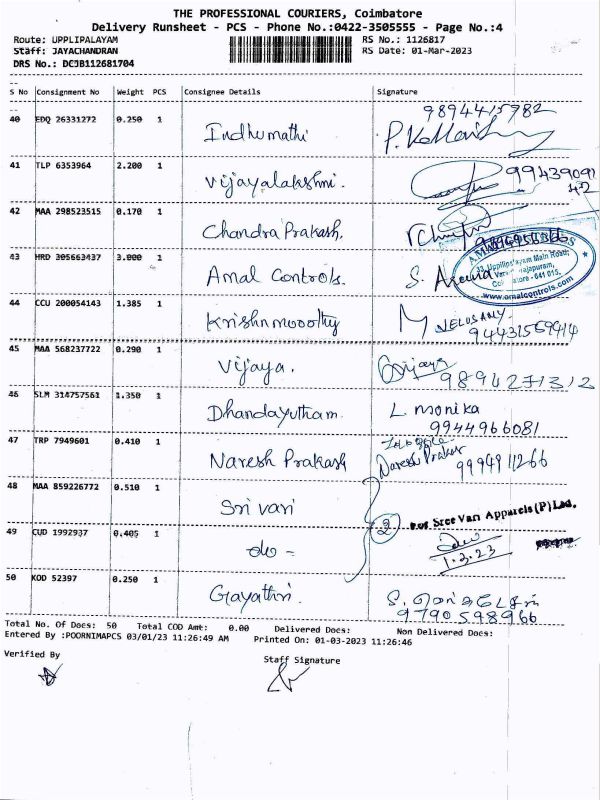 THE PROFESSIONAL COURIERS, Coimbatore
Delivery Runsheet - PCS - Phone No.:0422-3505555 - Page No.:4
Route: UPPLIPALAYAM RS No.: 1126817
Staff: JAYACHANDRAN RS Date: 01-Mar-2023
DRS No.: DCJB112681704
S No Consignment No Weight PCS Consignee Details Signature
40 EDQ 26331272 0.250 1 Indhumathi 9894415782
41 TLP 6353964 2.200 1 Vijayalakshmi. 9943909142
42 MAA 298523515 0.170 1 Chandra Prakash.
43 HRD 305663437 3.000 1 Amal Controls. S. Aravind
Uppilipalayam Main Road,
Coimbatore - 641 015.
www.amalcontrols.com
44 CCU 200054143 1.385 1 Krishnmooorthy M VELUSAMY
94431569914
45 MAA 568237722 0.290 1 Vijaya. Vijaya
9894271312
46 SLM 314757561 1.350 1 Dhandayutham L monika
9944966081
47 TRP 7949601 0.410 1 Naresh Prakash Naresh Prakash
9994911266
48 MAA 859226772 0.510 1 Sri vari
2 For Sree Vari Apparels (P) Ltd.
49 CUD 1992937 0.405 1 do -
1.3.23
50 KOD 52397 0.250 1 Gayathri.
9790598966
Total No. Of Docs: 50 Total COD Amt: 0.00 Delivered Docs: Non Delivered Docs:
Entered By :POORNIMAPCS 03/01/23 11:26:49 AM Printed On: 01-03-2023 11:26:46
Verified By
Staff Signature